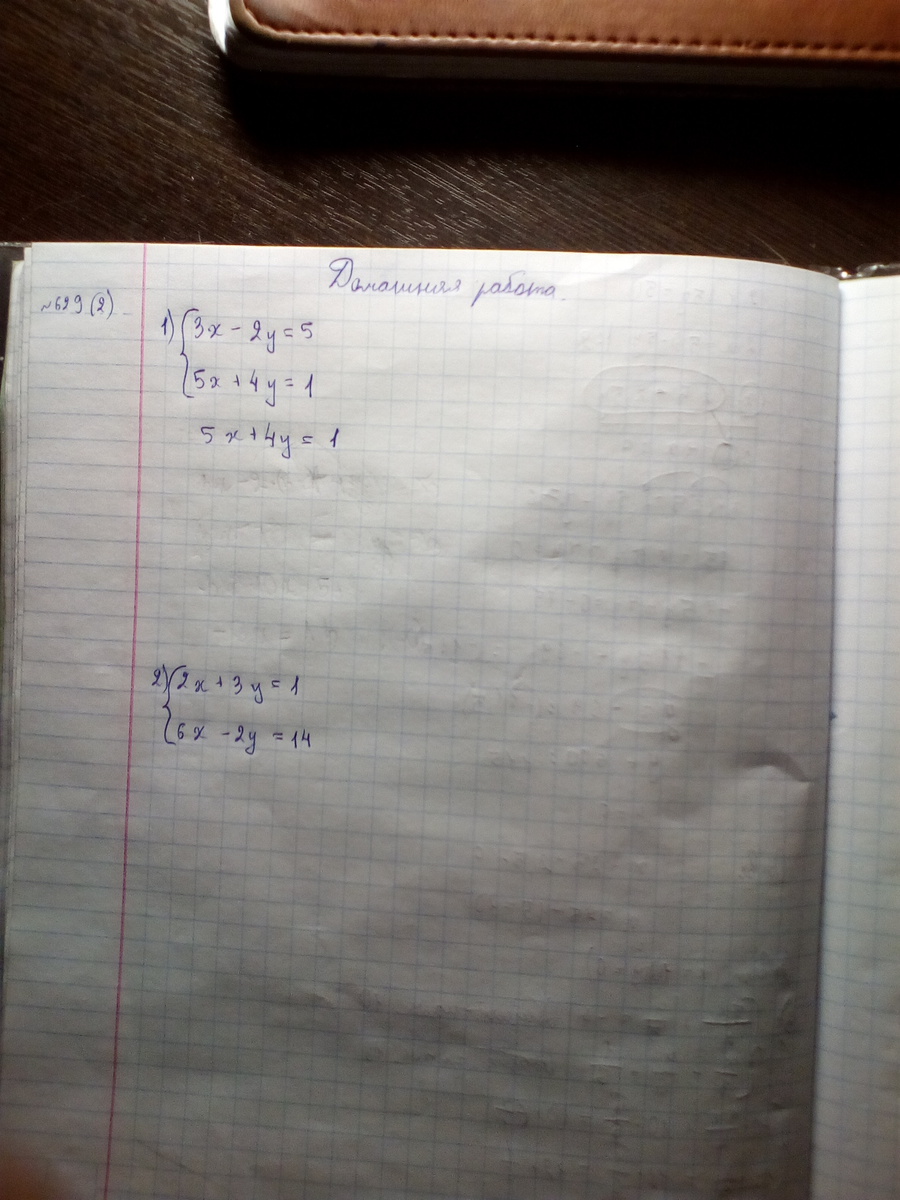 Домашняя работа.
№629(2)
1) {3x - 2y = 5
5x + 4y = 1
5x + 4y = 1
2) {2x + 3y = 1
6x - 2y = 14